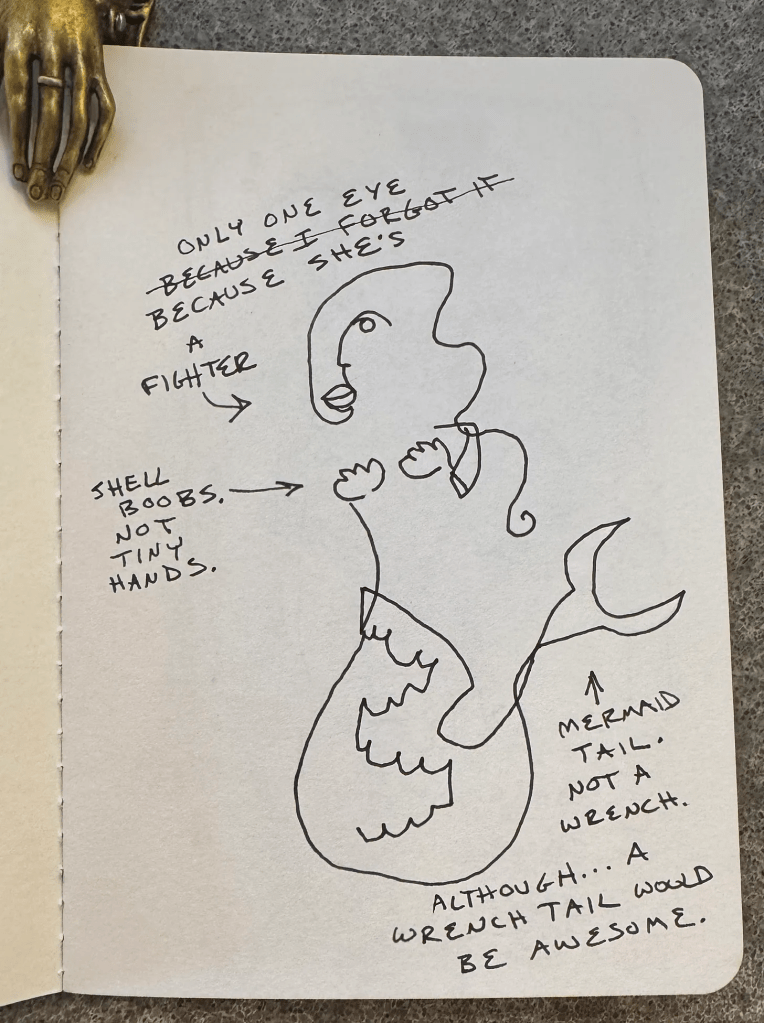 ONLY ONE EYE
BECAUSE I FORGOT IT
BECAUSE SHE'S
A
FIGHTER
SHELL
BOOBS.
NOT
TINY
HANDS.
MERMAID
TAIL.
NOT A
WRENCH.
ALTHOUGH... A
WRENCH TAIL WOULD
BE AWESOME.